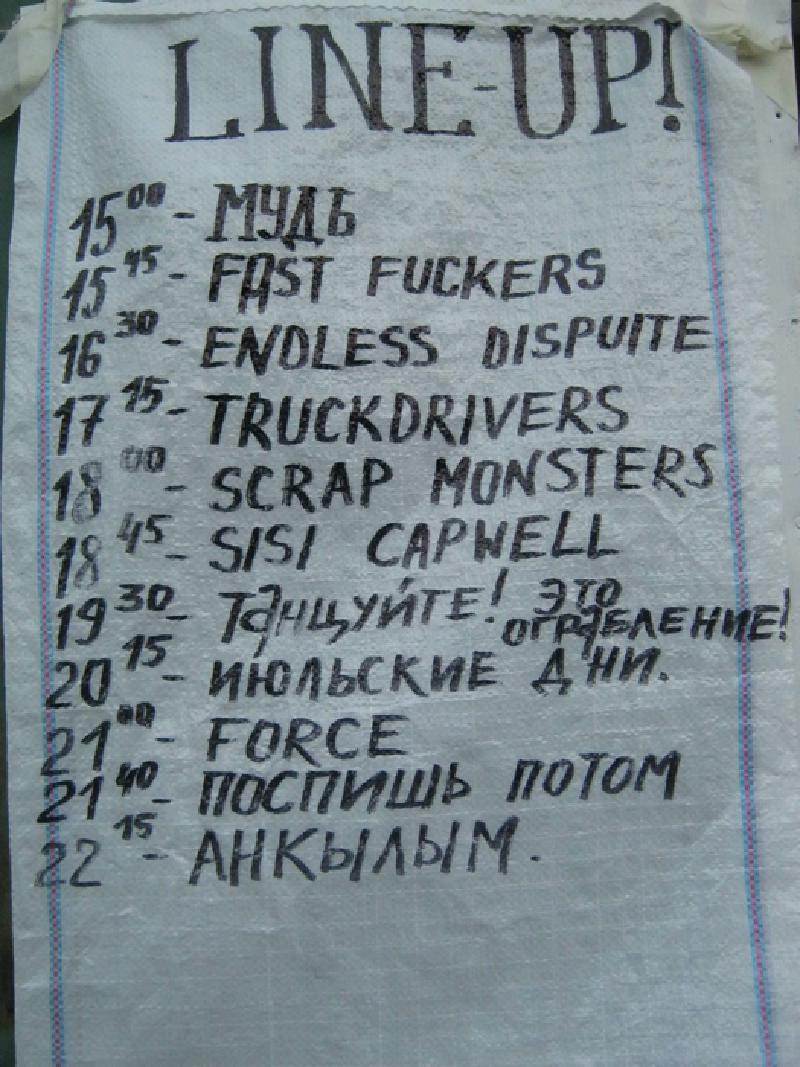 LINE-UP!
15 00 - МУДЬ
15 45 - FAST FUCKERS
16 30 - ENDLESS DISPUITE
17 15 - TRUCKDRIVERS
18 00 - SCRAP MONSTERS
18 45 - SISI CAPWELL
19 30 - ТАНЦУЙТЕ! ЭТО
ОГРАБЛЕНИЕ!
20 15 - ИЮЛЬСКИЕ ДНИ.
21 00 - FORCE
21 40 - ПОСПИШЬ ПОТОМ
22 15 - АНКЫЛЫМ.